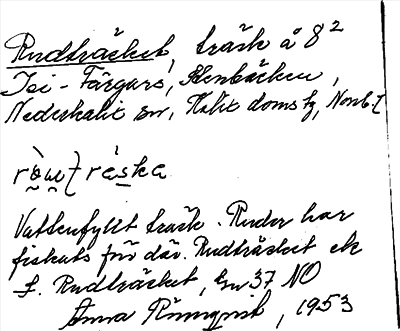 Rudträsket, träsk å 8²
Tei-Färgars, Stenbäcken,
Nederkalix sn, Kalix doms tg, Norrb. l
Vattenfyllt träsk. Rudor har
fiskats för där. Rudträsket ek
f. Rudträsket, Gsn 37 NO
Anna Rönnqvist, 1953